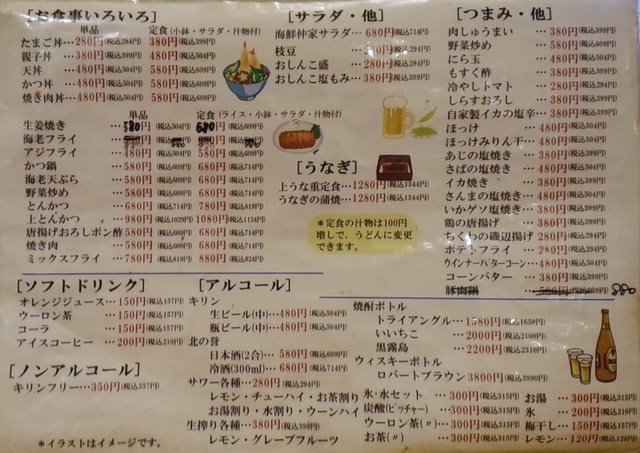 [お食事いろいろ]
単品 定食(小鉢・サラダ・汁物付)
たまご丼…280円(税込294円) 380円(税込399円)
親子丼…380円(税込399円) 480円(税込504円)
天丼…480円(税込504円) 580円(税込609円)
かつ丼…480円(税込504円) 580円(税込609円)
焼き肉丼…480円(税込504円) 580円(税込609円)
単品 定食(ライス・小鉢・サラダ・汁物付)
生姜焼き…580円(税込504円) 680円(税込609円)
海老フライ
アジフライ…480円(税込504円) 580円(税込609円)
かつ鍋…580円(税込609円) 680円(税込714円)
海老天ぷら…580円(税込609円) 680円(税込714円)
野菜炒め…580円(税込609円) 680円(税込714円)
とんかつ…680円(税込714円) 780円(税込819円)
上とんかつ…980円(税込1029円) 1080円(税込1134円)
唐揚げおろしポン酢 580円(税込609円) 680円(税込714円)
焼き肉…580円(税込609円) 680円(税込714円)
ミックスフライ…780円(税込819円) 880円(税込924円)
[サラダ・他]
海鮮仲家サラダ…680円(税込714円)
枝豆…280円(税込294円)
おしんこ盛…280円(税込294円)
おしんこ塩もみ…380円(税込399円)
[うなぎ]
上うな重定食…1280円(税込1344円)
うなぎの蒲焼…1280円(税込1344円)
*定食の汁物は100円
増しで、うどんに変更
できます。
[つまみ・他]
肉しゅうまい…380円(税込399円)
野菜炒め…580円(税込609円)
にら玉…480円(税込504円)
もずく酢…380円(税込399円)
冷やしトマト…280円(税込294円)
しらすおろし…380円(税込399円)
自家製イカの塩辛…380円(税込399円)
ほっけ…480円(税込504円)
ほっけみりん干…480円(税込504円)
あじの塩焼き…380円(税込399円)
さばの塩焼き…480円(税込504円)
イカ焼き…380円(税込399円)
さんまの塩焼き…480円(税込504円)
いかゲソ塩焼き…380円(税込399円)
鶏の唐揚げ…480円(税込504円)
ちくわの磯辺揚げ 280円(税込294円)
ポテトフライ…280円(税込294円)
ウインナーバターコーン…480円(税込504円)
コーンバター…380円(税込399円)
豚肉鍋…580円(税込609円) 880
[ソフトドリンク]
オレンジジュース…150円(税込157円)
ウーロン茶…150円(税込157円)
コーラ…150円(税込157円)
アイスコーヒー…200円(税込210円)
[ノンアルコール]
キリンフリー…350円(税込367円)
*イラストはイメージです。
[アルコール]
キリン
生ビール(中)…480円(税込504円)
瓶ビール(中)…480円(税込504円)
北の誉
日本酒(2合)…580円(税込609円)
冷酒(300ml)…680円(税込714円)
サワー各種…280円(税込294円)
レモン・チューハイ・お茶割り
お湯割り・水割り・ウーンハイ
生搾り各種…380円(税込399円)
レモン・グレープフルーツ
焼酎ボトル
トライアングル…1580円(税込1659円)
いいちこ…2000円(税込2100円)
黒霧島…2200円(税込2310円)
ウィスキーボトル
ロバートブラウン 3800円(税込3990円)
氷・水セット…300円(税込315円)
炭酸(ピッチャー)…300円(税込315円)
ウーロン茶(〃)…300円(税込315円)
お茶(〃)…300円(税込315円)
お湯…300円(税込315円)
氷…200円(税込210円)
梅干し…150円(税込157円)
レモン…120円(税込126円)